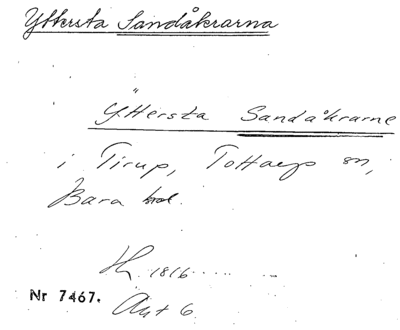 Ytersta Sandåkrarna
Yttersta Sandåkrarne
i Tirup, Tottarps sn,
Bara hd.
Hh 1816......
Nr 7467.
Akt 6